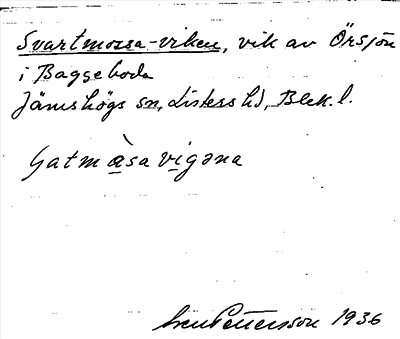 Svartmossa-viken, vik av Örsjön
i Baggeboda
Jämshögs sn, Listers hd, Blek. l.
Gatmàsavigəna
Sven Pettersson 1936